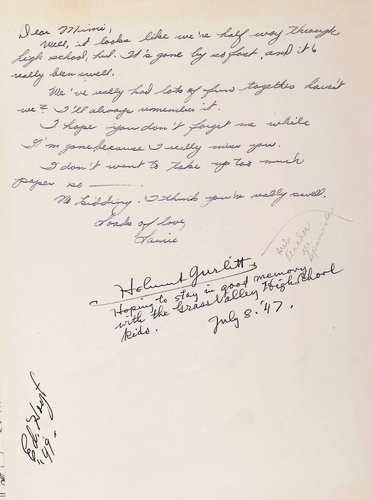 Dear Mimi,
Well, it looks like we're half way through
high school, huh. It's gone by so fast, and it's
really been swell.
We've really had lots of fun together haven't
we? I'll always remember it.
I hope you don't forget me while
I'm gone because I really miss you.
I don't want to take up too much
paper so ———.
No kidding, I think you're really swell.
Loads of love,
Laurie
our
teacher
in
Spanish
Helmut Gurlitt
Hoping to stay in good memory
with the Grass Valley High School
kids.
July 8. '47.
Ed. Hoyt
"49"